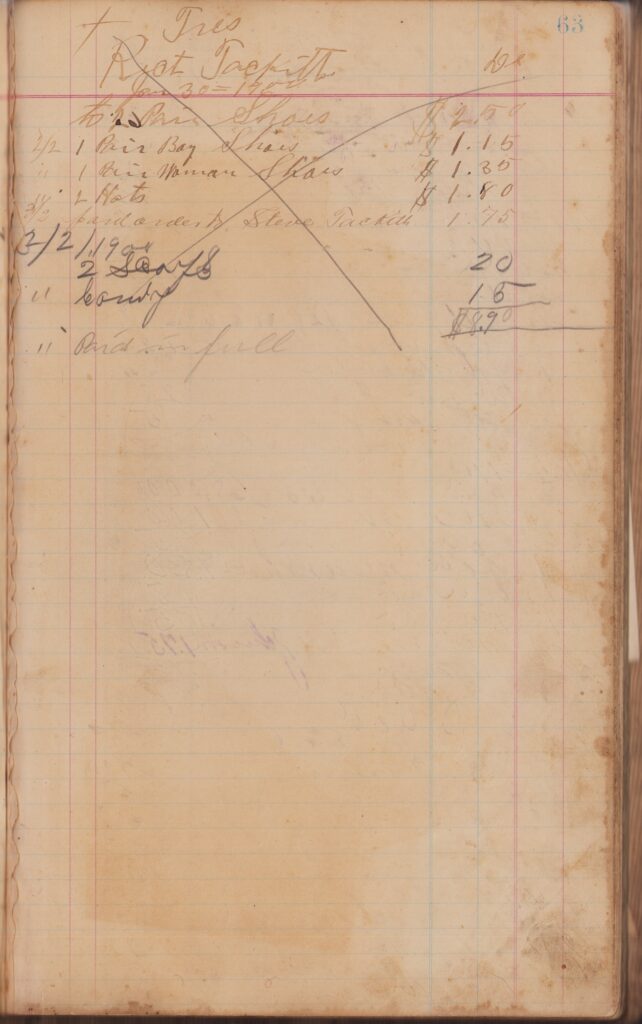 63
+ Tres
Riot Tackitt Dr
Jan 30 = 190
to 2 Pair Shoes $ 2 50
2/2 1 Pair Boy Shoes $ 1.15
" 1 Pair Woman Shoes $ 1.35
" 2 Hats $ 1.80
3/2 paid order to Steve Tackitt 1.75
2/2/190
2 Soaps 20
" Candy 15
$8.90
" Paid in full